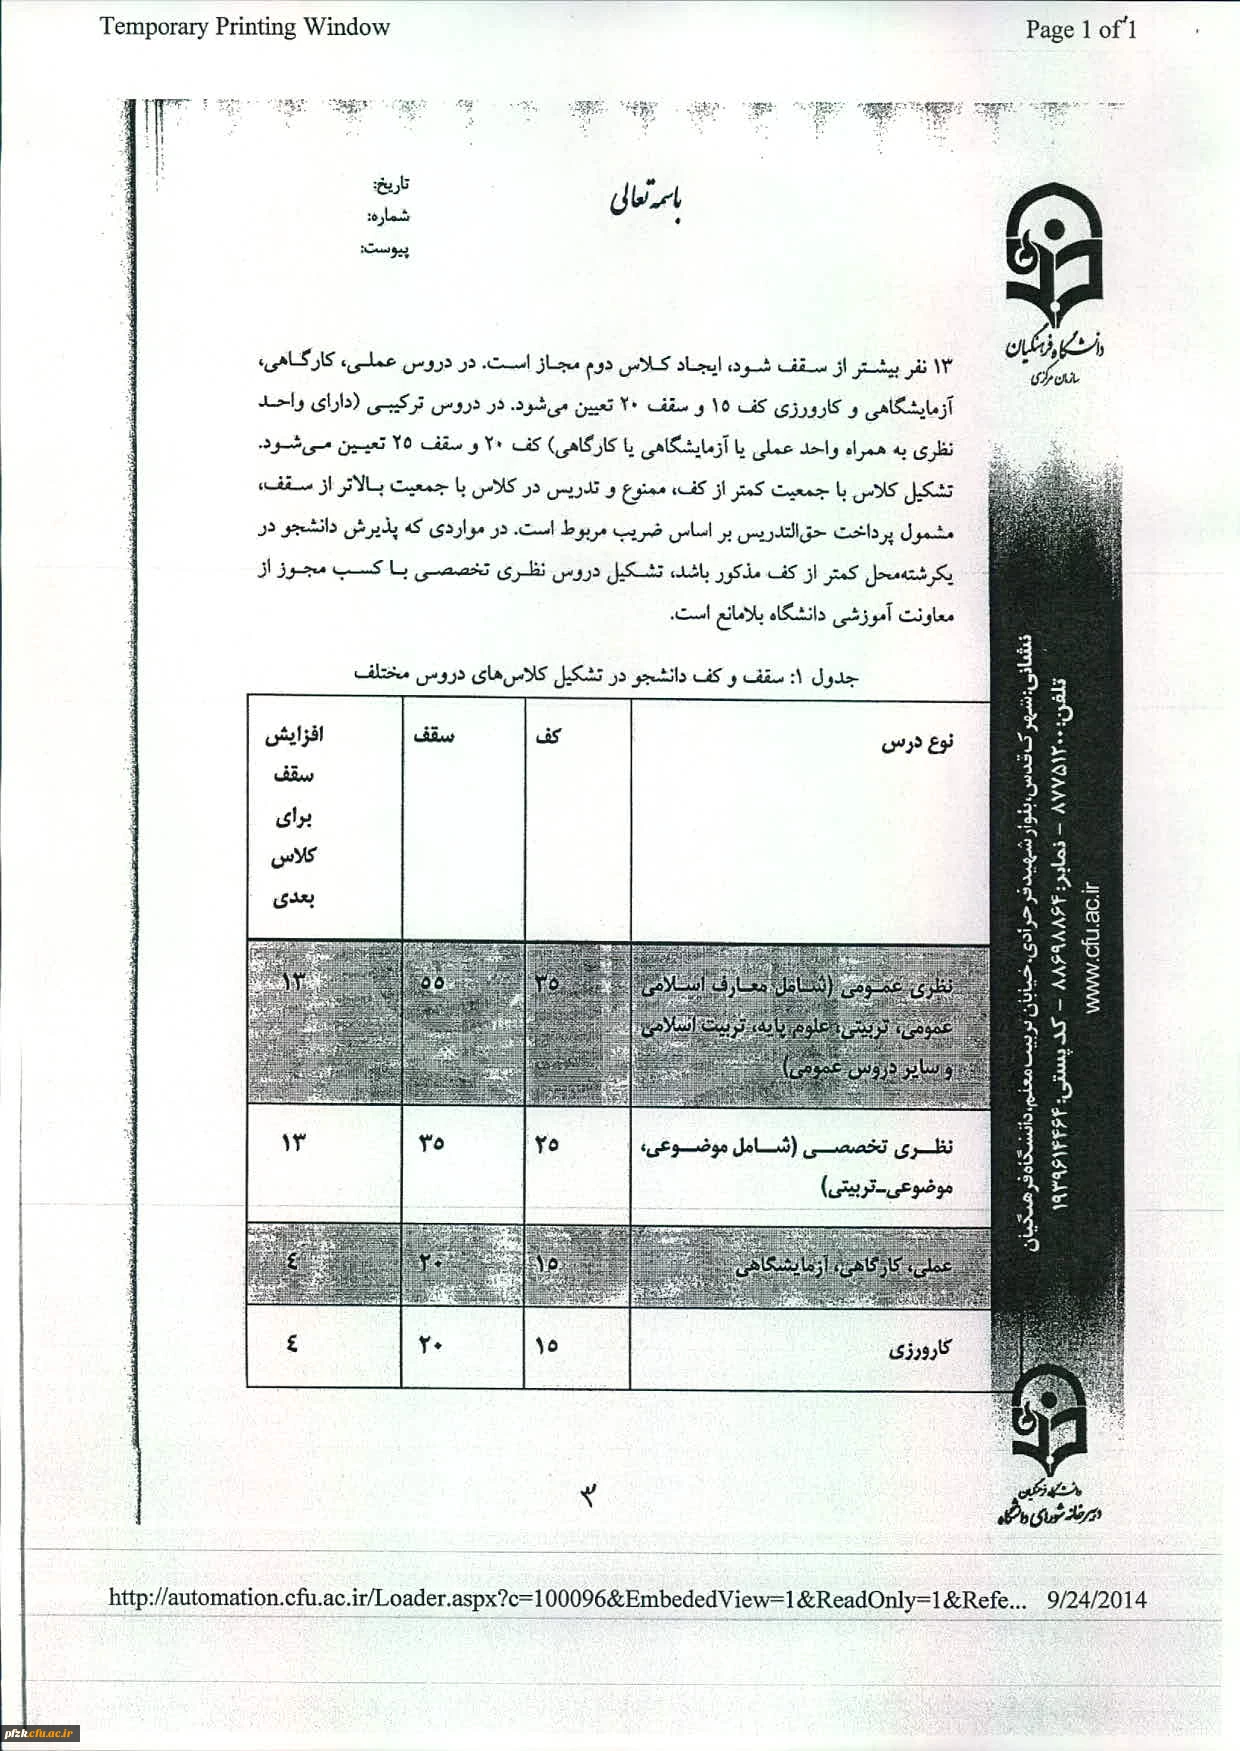 Temporary Printing Window
Page 1 of 1
باسمه تعالی
تاریخ:
شماره:
پیوست:
دانشگاه فرهنگیان
سازمان مرکزی
۱۳ نفر بیشتر از سقف شود، ایجاد کلاس دوم مجاز است. در دروس عملی، کارگاهی،
آزمایشگاهی و کارورزی کف ۱۵ و سقف ۲۰ تعیین می‌شود. در دروس ترکیبی (دارای واحد
نظری به همراه واحد عملی یا آزمایشگاهی یا کارگاهی) کف ۲۰ و سقف ۲۵ تعیین می‌شود.
تشکیل کلاس با جمعیت کمتر از کف، ممنوع و تدریس در کلاس با جمعیت بالاتر از سقف،
مشمول پرداخت حق‌التدریس بر اساس ضریب مربوط است. در مواردی که پذیرش دانشجو در
یکرشته‌محل کمتر از کف مذکور باشد، تشکیل دروس نظری تخصصی با کسب مجوز از
معاونت آموزشی دانشگاه بلامانع است.
جدول ۱: سقف و کف دانشجو در تشکیل کلاس‌های دروس مختلف
نوع درس کف سقف افزایش
سقف
برای
کلاس
بعدی
نظری عمومی (شامل معارف اسلامی ۳۵ ۵۵ ۱۳
عمومی، تربیتی، علوم پایه، تربیت اسلامی
و سایر دروس عمومی)
نظری تخصصی (شامل موضوعی، ۲۵ ۳۵ ۱۳
موضوعی-تربیتی)
عملی، کارگاهی، آزمایشگاهی ۱۵ ۲۰ ٤
کارورزی ۱۵ ۲۰ ٤
نشانی: شهرک قدس، بلوار شهید فرحزادی، خیابان تربیت معلم، دانشگاه فرهنگیان
تلفن: ۸۷۷۵۱۲۰۰ - نمابر: ۸۸۶۹۸۸۶۴ - کد پستی: ۱۹۳۹۶۱۴۴۶۴
www.cfu.ac.ir
دانشگاه فرهنگیان
دبیرخانه شورای دانشگاه
۳
http://automation.cfu.ac.ir/Loader.aspx?c=100096&EmbededView=1&ReadOnly=1&Refe... 9/24/2014
pfzk.cfu.ac.ir